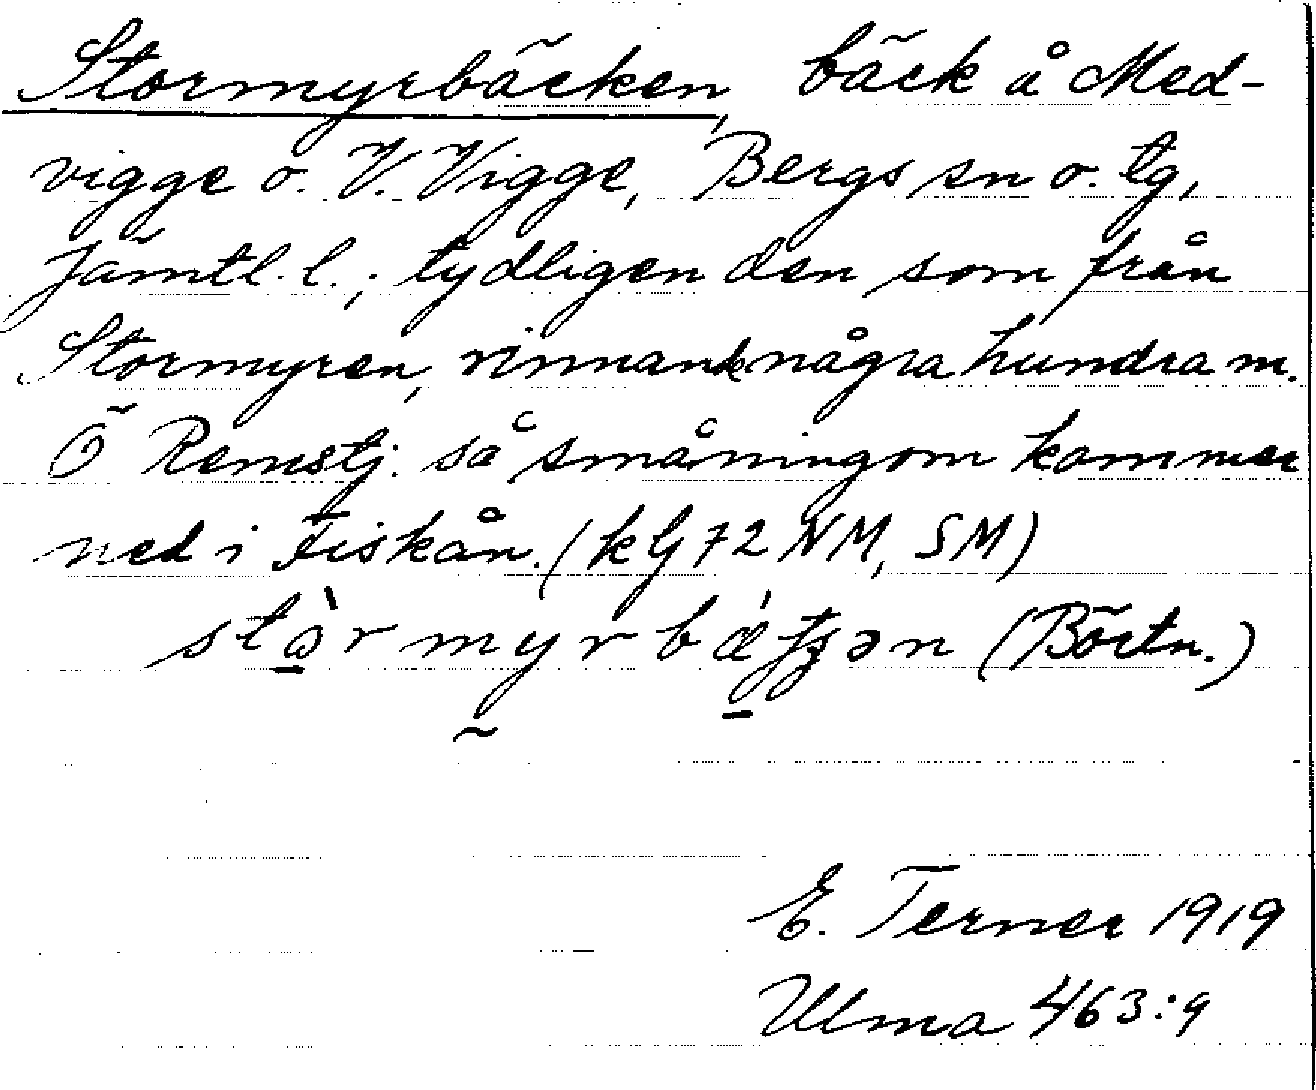 Stormyrbäcken, bäck å Med-
vigge o. V. Vigge, Bergs sn o. tg,
Jämtl. l.; tydligen den som från
Stormyren, rinnande några hundra m.
Ö Remstj. så småningom kommer
ned i Fiskån. (kbl 72 NM, SM)
stò̱rmyrbǽ̱tʃən (Börtn.)
E. Terner 1919
Ulma 463:9